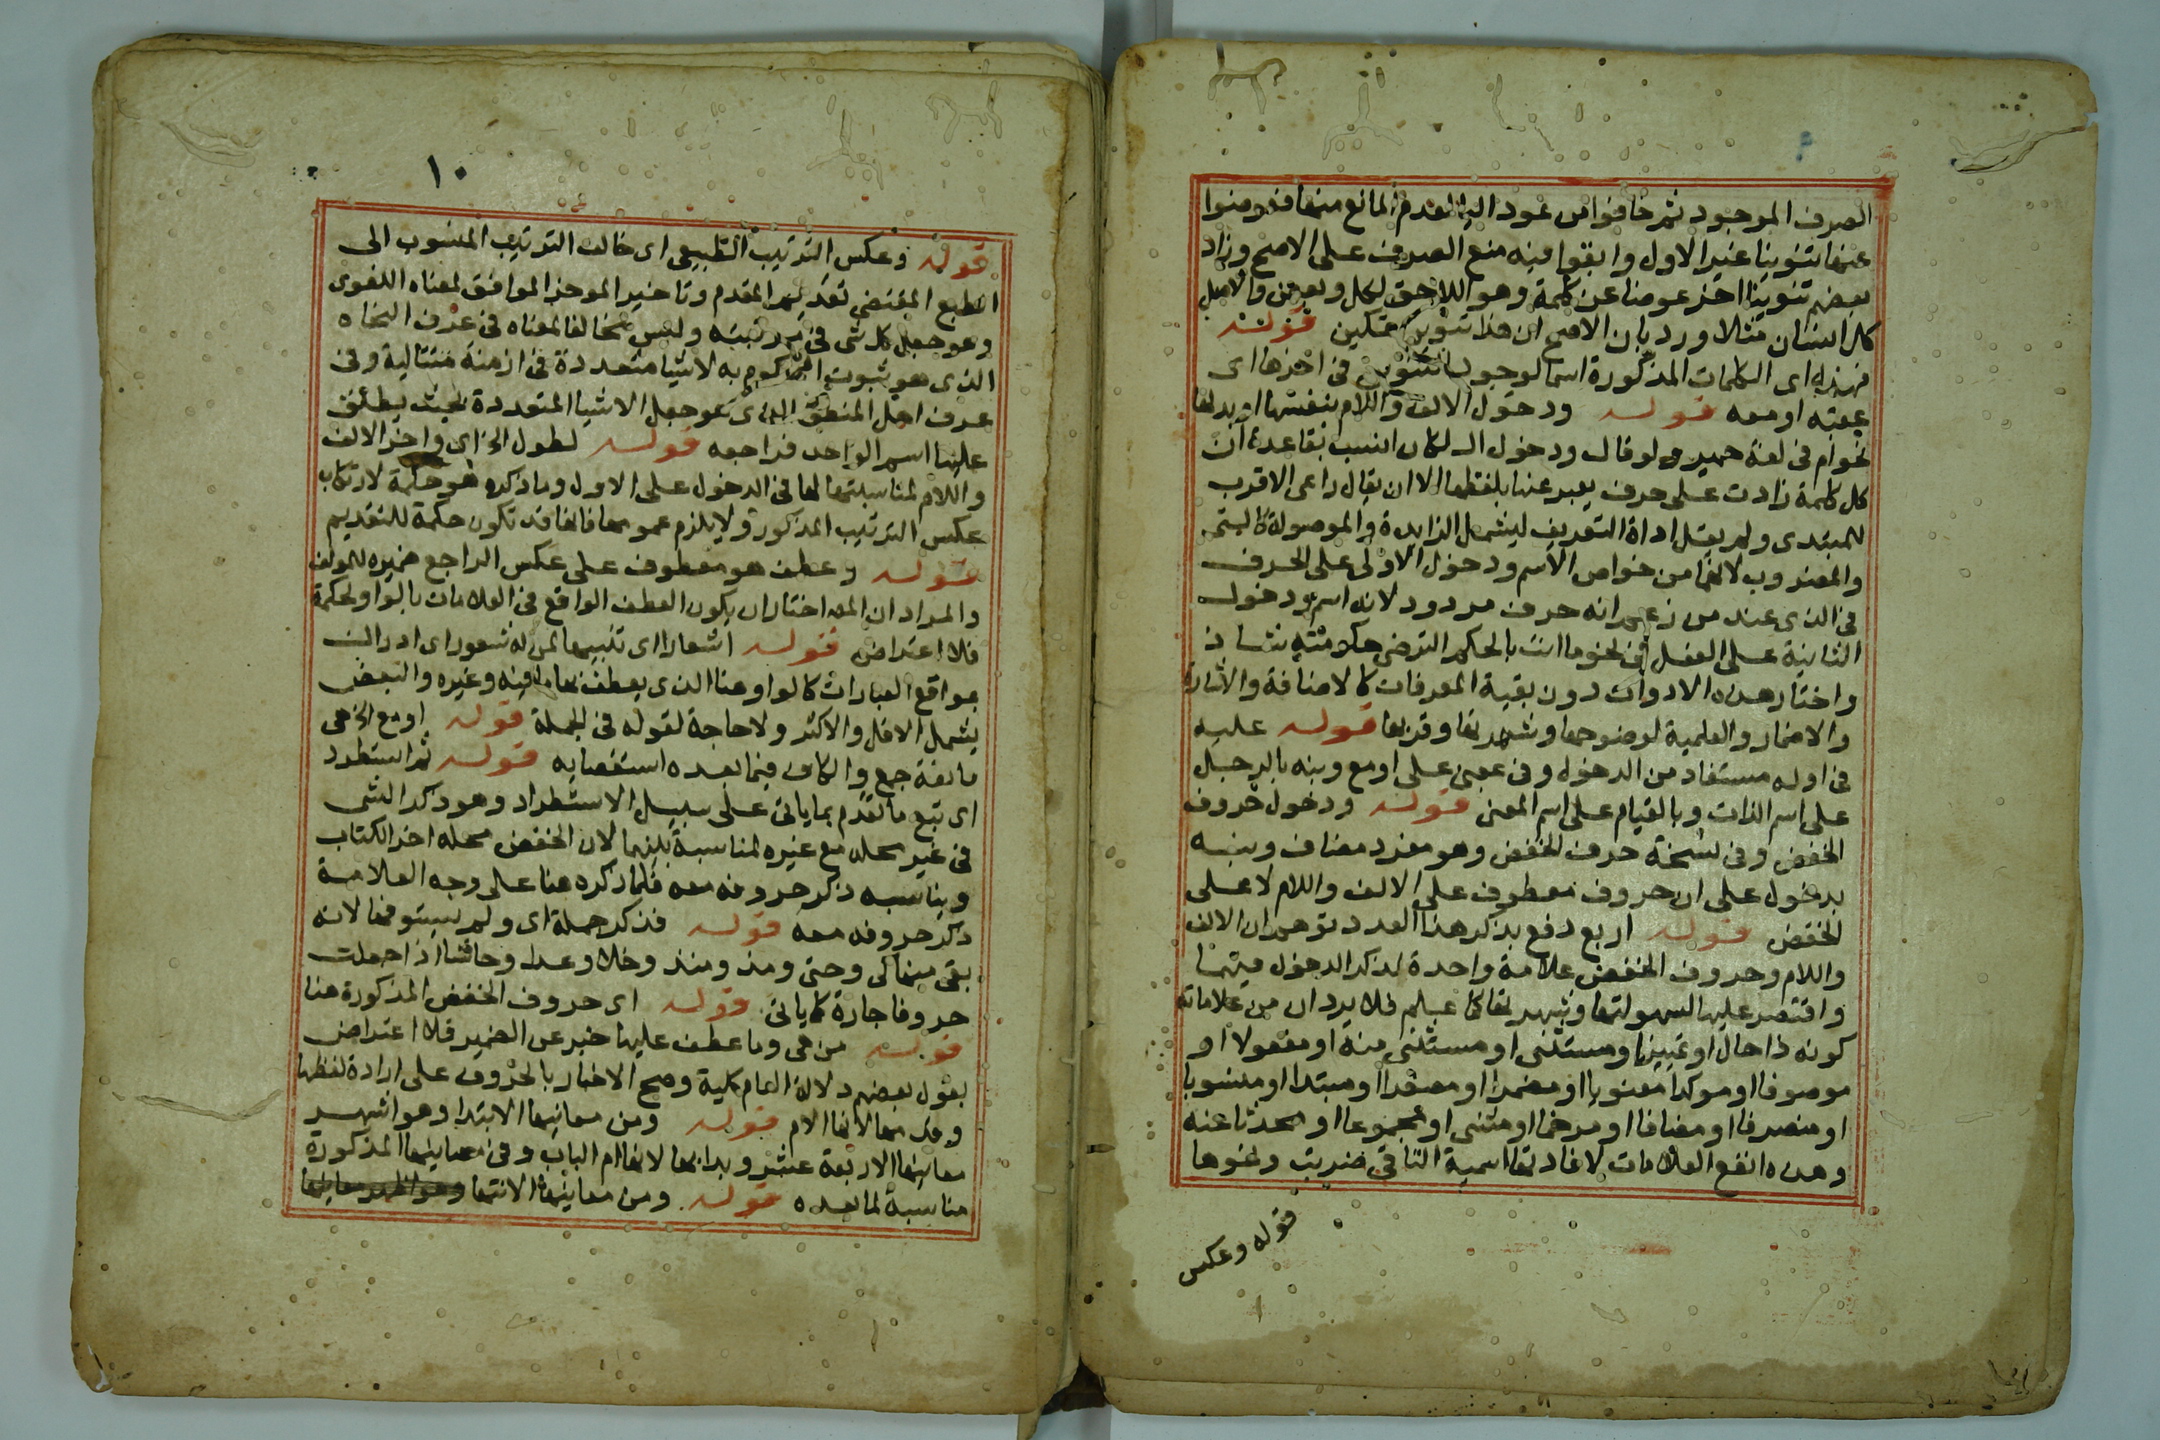 الصرف الموجود ثم خافوا من عود اليا لعدم المانع منها فعوضوا
عنها تنوينا غير الاول وابقوا فيه منع الصرف على الاصح وزاد
بعضهم تنوينا اخر عوضا عن كلمة وهو اللاحق لكل وبعض والاصل
كل انسان مثلا ورد بان الاصح ان هذا تنوين تمكين قوله
فهذه اى الكلمات المذكورة اسما لوجود التنوين فى اخرها اى
عقبه او معه قوله ودخول الالف واللام بنفسها او بدلها
نحو ام فى لغة حمير ولو قال ودخول ال لكان انسب بقاعدة ان
كل كلمة زادت على حرف يعبر عنها بلفظها الا ان يقال راعى الاقرب
للمبتدى ولم يقل اداة التعريف ليشمل الزايدة والموصولة كاليتم
والمضروب لانها من خواص الاسم ودخول الاولى على الحرف
فى الذى عند من زعم انه حرف مردود لانه اسم ودخول
الثانية على الفعل فى نحو ما انت بالحكم الترضى حكومته شاذ
واختار هذه الادوات دون بقية المعرفات كالاضافة والاشارة
والاضمار والعلمية لوضوحها وشهرتها وقربها قوله عليه
فى اوله مستفاد من الدخول وفى بمعنى على او مع ونبه بالرجل
على اسم الذات وبالقيام على اسم المعنى قوله ودخول حروف
الخفض وفى نسخة حرف الخفض وهو مفرد مضاف ونبه
بدخول على ان حروف معطوف على الالف واللام لا على
الخفض قوله اربع دفع بذكر هذا العدد توهم ان الالف
واللام وحروف الخفض علامة واحدة لذكر الدخول فيهما
واقتصر عليها لسهولتها وشهرتها كما علم فلا يرد ان من علاماته
كونه ذا حال او تمييزا ومستثنى او مستثنى منه او مفعولا او
موصوفا او موكدا معنويا او مضمرا او مصغرا او مبتدا او منسوبا
او منصرفا او مضافا او مرخما او مثنى او مجموعا او محدثا عنه
وهذه انفع العلامات لافادتها اسمية التا فى ضربت ونحوها
قوله وعكس
١٠
قوله وعكس الترتيب الطبيعى اى خالف الترتيب المنسوب الى
الطبع المقتضى تقديم المقدم وتاخير الموخر الموافق لمعناه اللغوى
وهو جعل كل شى فى مرتبته وليس مخالفا لمعناه فى عرف النحاه
الذى هو ثبوت المحكوم به لاشيا متعددة فى ازمنة متتالية وفى
عرف اهل المنطق الذى هو جعل الاشيا المتعددة بحيث يطلق
عليها اسم الواحد فراجعه قوله لطول الخ اى واخر الالف
واللام لمناسبتها لها فى الدخول على الاول وما ذكره هو حكمة لارتكاب
عكس الترتيب المذكور ولا يلزم عمومها فانها قد تكون حكمة للتقديم
قوله وعطف هو معطوف على عكس الراجع ضميره للمولف
والمراد ان المص اختار ان يكون العطف الواقع فى العلامات بالواو لحكمة
فلا اعتراض قوله اشعارا اى تنبيها لمن له شعور اى ادراك
بمواقع العبارات كالواو هنا الذى يعطف بها ما فيه وغيره والبعض
يشمل الاقل والاكثر ولا حاجة لقوله فى الجملة قوله او مع الخ هى
مانعة جمع والكاف فيما بعده استقصايه قوله ثم استطرد
اى تبع ما تقدم بما ياتى على سبيل الاستطراد وهو ذكر الشى
فى غير محله مع غيره لمناسبة بينهما لان الخفض محله اخر الكتاب
ويناسبه ذكر حروفه معه فلما ذكره هنا على وجه العلامة
ذكر حروفه معه قوله فذكر جملة اى ولم يستوفها لانه
بقى منها كى وحتى ومذ ومنذ وخلا وعدا وحاشا اذا جعلت
حروفا جارة كما ياتى قوله اى حروف الخفض المذكورة هنا
قوله من هى وما عطف عليها خبر عن الضمير فلا اعتراض
بقول بعضهم دلالة العام كلية وصح الاخبار بالحروف على ارادة لفظها
وقدمها لانها الام قوله ومن معانيها الابتدا وهو اشهر
معانيها الاربعة عشر وبدا بها لانها ام الباب وفى معانيها المذكورة
مناسبة لما بعده قوله ومن معانيها الانتها